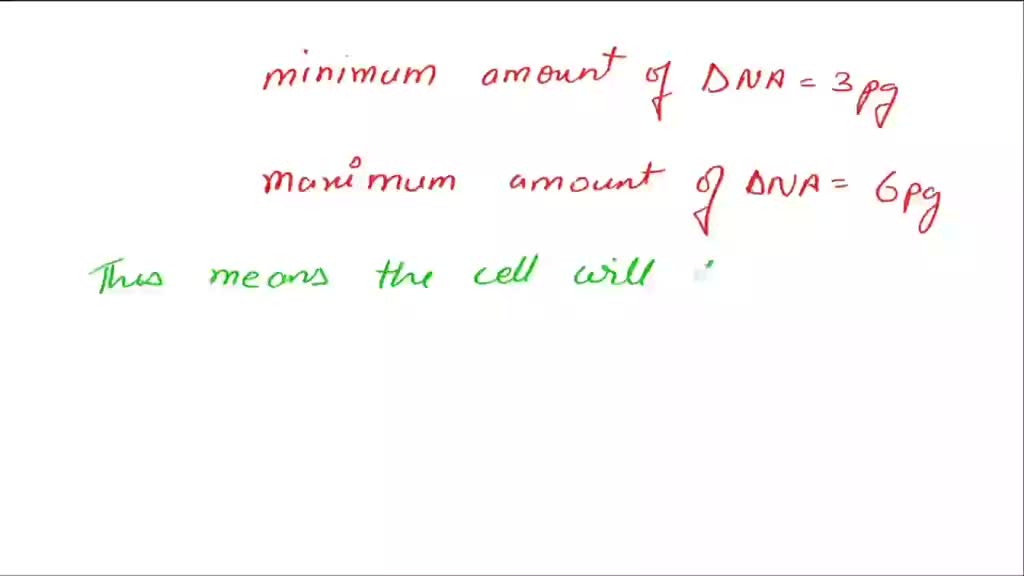 minimum amount of DNA = 3pg
maximum amount of DNA = 6pg
This means the cell will